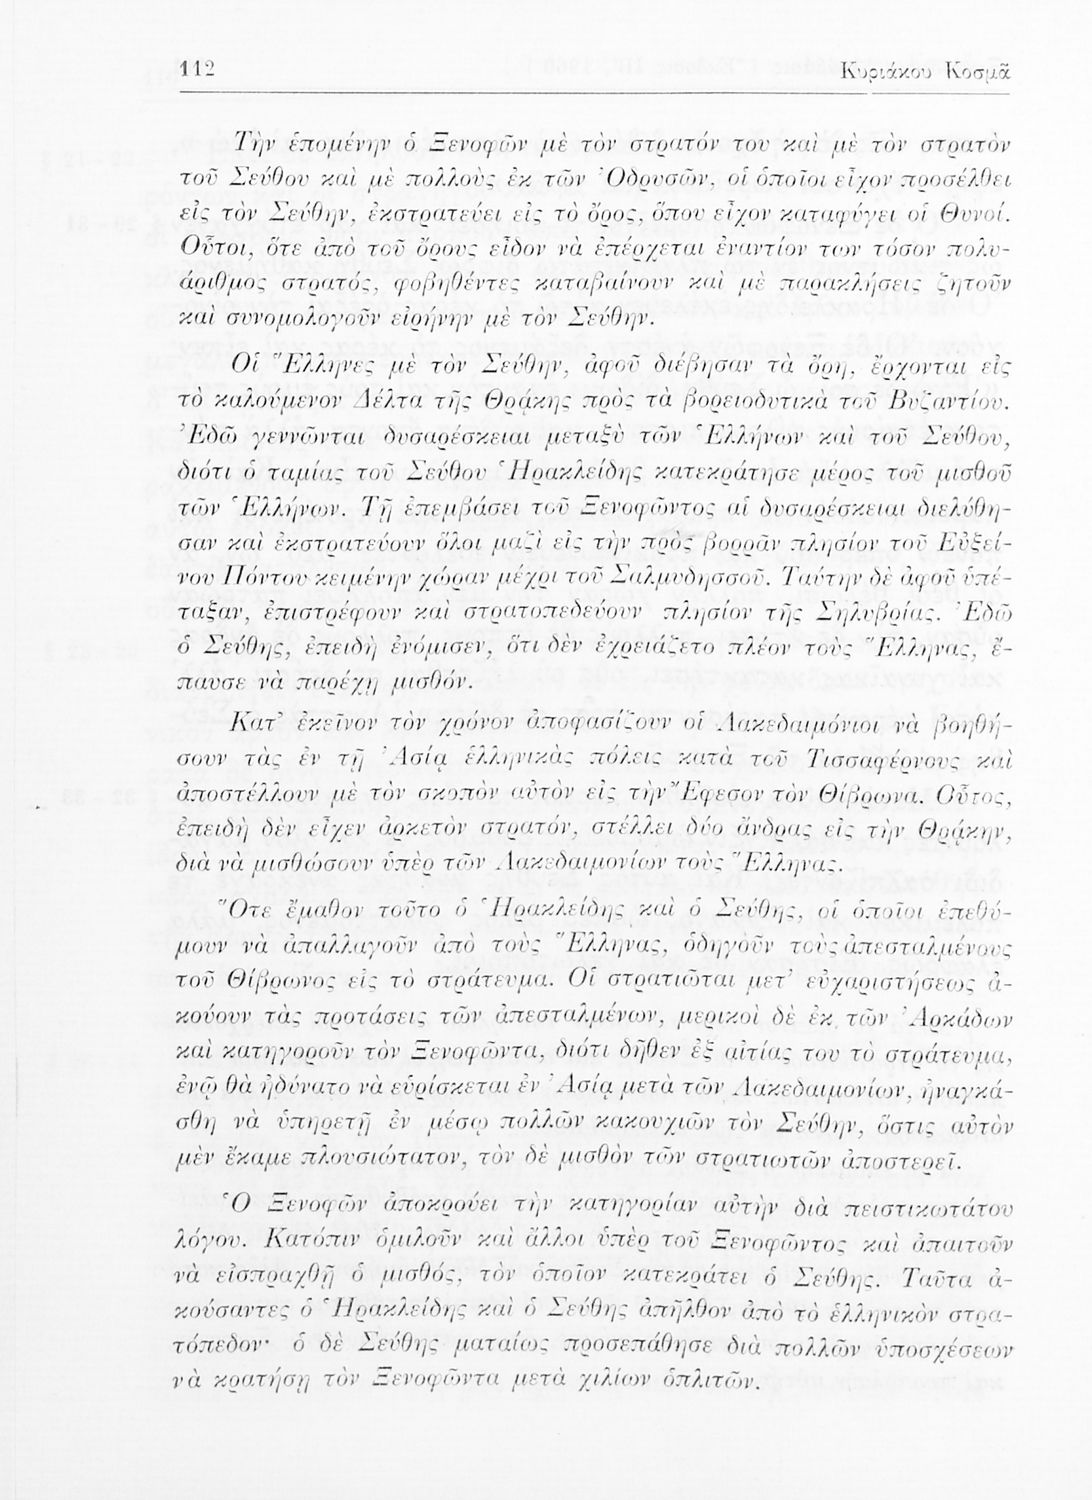 112 Κυριάκου Κοσμᾶ
Τὴν ἑπομένην ὁ Ξενοφῶν μὲ τὸν στρατόν του καὶ μὲ τὸν στρατὸν
τοῦ Σεύθου καὶ μὲ πολλοὺς ἐκ τῶν Ὀδρυσῶν, οἱ ὁποῖοι εἶχον προσέλθει
εἰς τὸν Σεύθην, ἐκστρατεύει εἰς τὸ ὄρος, ὅπου εἶχον καταφύγει οἱ Θυνοί.
Οὗτοι, ὅτε ἀπὸ τοῦ ὄρους εἶδον νὰ ἐπέρχεται ἐναντίον των τόσον πολυ-
άριθμος στρατός, φοβηθέντες καταβαίνουν καὶ μὲ παρακλήσεις ζητοῦν
καὶ συνομολογοῦν εἰρήνην μὲ τὸν Σεύθην.
Οἱ Ἕλληνες μὲ τὸν Σεύθην, ἀφοῦ διέβησαν τὰ ὄρη, ἔρχονται εἰς
τὸ καλούμενον Δέλτα τῆς Θράκης πρὸς τὰ βορειοδυτικὰ τοῦ Βυζαντίου.
Ἐδῶ γεννῶνται δυσαρέσκειαι μεταξὺ τῶν Ἑλλήνων καὶ τοῦ Σεύθου,
διότι ὁ ταμίας τοῦ Σεύθου Ἡρακλείδης κατεκράτησε μέρος τοῦ μισθοῦ
τῶν Ἑλλήνων. Τῇ ἐπεμβάσει τοῦ Ξενοφῶντος αἱ δυσαρέσκειαι διελύθη-
σαν καὶ ἐκστρατεύουν ὅλοι μαζὶ εἰς τὴν πρὸς βορρᾶν πλησίον τοῦ Εὐξεί-
νου Πόντου κειμένην χώραν μέχρι τοῦ Σαλμυδησσοῦ. Ταύτην δὲ ἀφοῦ ὑπέ-
ταξαν, ἐπιστρέφουν καὶ στρατοπεδεύουν πλησίον τῆς Σηλυβρίας. Ἐδῶ
ὁ Σεύθης, ἐπειδὴ ἐνόμισεν, ὅτι δὲν ἐχρειάζετο πλέον τοὺς Ἕλληνας, ἔ-
παυσε νὰ παρέχῃ μισθόν.
Κατ’ ἐκεῖνον τὸν χρόνον ἀποφασίζουν οἱ Λακεδαιμόνιοι νὰ βοηθή-
σουν τὰς ἐν τῇ Ἀσίᾳ ἑλληνικὰς πόλεις κατὰ τοῦ Τισσαφέρνους καὶ
ἀποστέλλουν μὲ τὸν σκοπὸν αὐτὸν εἰς τὴν Ἔφεσον τὸν Θίβρωνα. Οὗτος,
ἐπειδὴ δὲν εἶχεν ἀρκετὸν στρατόν, στέλλει δύο ἄνδρας εἰς τὴν Θράκην,
διὰ νὰ μισθώσουν ὑπὲρ τῶν Λακεδαιμονίων τοὺς Ἕλληνας.
Ὅτε ἔμαθον τοῦτο ὁ Ἡρακλείδης καὶ ὁ Σεύθης, οἱ ὁποῖοι ἐπεθύ-
μουν νὰ ἀπαλλαγοῦν ἀπὸ τοὺς Ἕλληνας, ὁδηγοῦν τοὺς ἀπεσταλμένους
τοῦ Θίβρωνος εἰς τὸ στράτευμα. Οἱ στρατιῶται μετ’ εὐχαριστήσεως ἀ-
κούουν τὰς προτάσεις τῶν ἀπεσταλμένων, μερικοὶ δὲ ἐκ τῶν Ἀρκάδων
καὶ κατηγοροῦν τὸν Ξενοφῶντα, διότι δῆθεν ἐξ αἰτίας του τὸ στράτευμα,
ἐνῷ θὰ ἠδύνατο νὰ εὑρίσκεται ἐν Ἀσίᾳ μετὰ τῶν Λακεδαιμονίων, ἠναγκά-
σθη νὰ ὑπηρετῇ ἐν μέσῳ πολλῶν κακουχιῶν τὸν Σεύθην, ὅστις αὐτὸν
μὲν ἔκαμε πλουσιώτατον, τὸν δὲ μισθὸν τῶν στρατιωτῶν ἀποστερεῖ.
Ὁ Ξενοφῶν ἀποκρούει τὴν κατηγορίαν αὐτὴν διὰ πειστικωτάτου
λόγου. Κατόπιν ὁμιλοῦν καὶ ἄλλοι ὑπὲρ τοῦ Ξενοφῶντος καὶ ἀπαιτοῦν
νὰ εἰσπραχθῇ ὁ μισθός, τὸν ὁποῖον κατεκράτει ὁ Σεύθης. Ταῦτα ἀ-
κούσαντες ὁ Ἡρακλείδης καὶ ὁ Σεύθης ἀπῆλθον ἀπὸ τὸ ἑλληνικὸν στρα-
τόπεδον· ὁ δὲ Σεύθης ματαίως προσεπάθησε διὰ πολλῶν ὑποσχέσεων
νὰ κρατήσῃ τὸν Ξενοφῶντα μετὰ χιλίων ὁπλιτῶν.